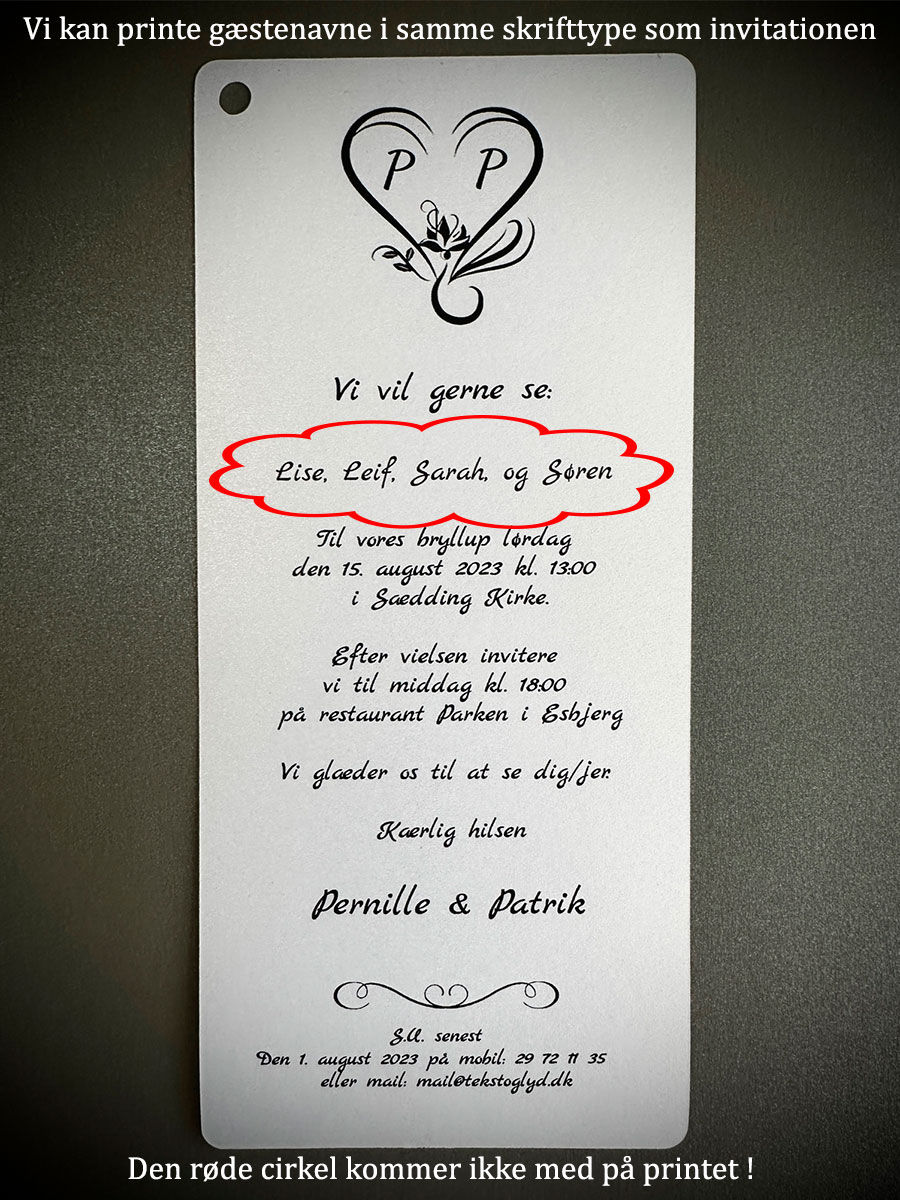 Vi kan printe gæstenavne i samme skrifttype som invitationen
P P
Vi vil gerne se:
Lise, Leif, Sarah, og Søren
Til vores bryllup lørdag
den 15. august 2023 kl. 13:00
i Sædding Kirke.
Efter vielsen invitere
vi til middag kl. 18:00
på restaurant Parken i Esbjerg
Vi glæder os til at se dig/jer.
Kærlig hilsen
Pernille & Patrik
S.U. senest
Den 1. august 2023 på mobil: 29 72 11 35
eller mail: mail@tekstoglyd.dk
Den røde cirkel kommer ikke med på printet !